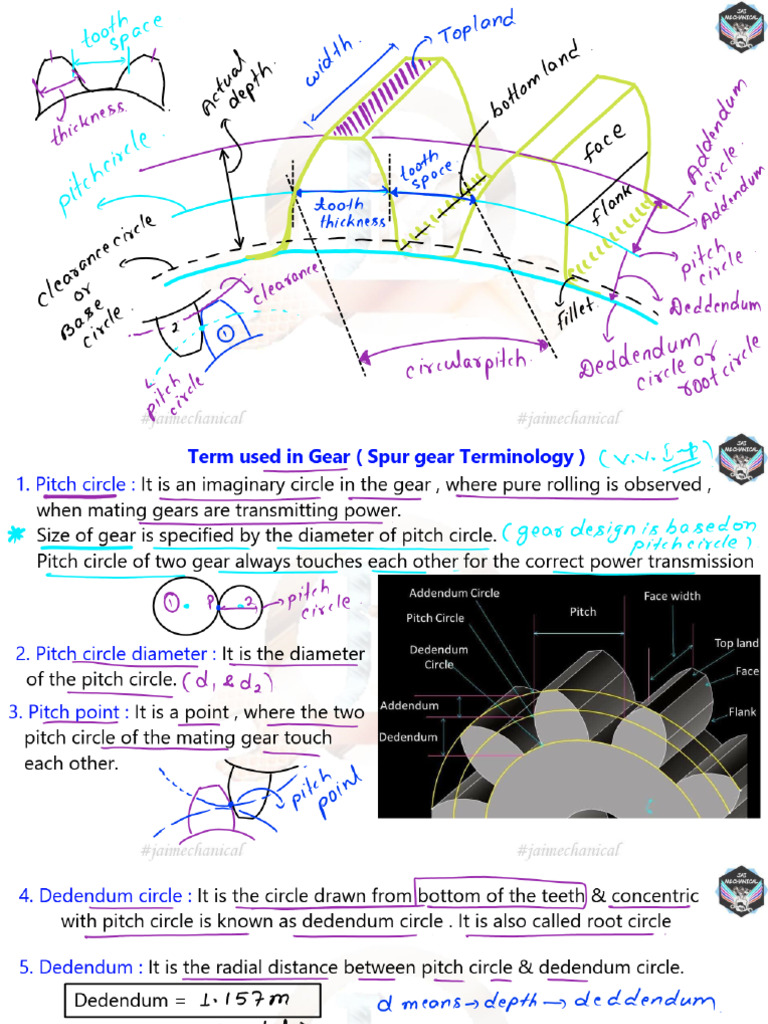 JAI
MECHANICAL
tooth
space
thickness
Actual
depth
width
Topland
bottom land
pitchcircle
tooth
space
tooth
thickness
face
flank
Addendum
circle
Addendum
pitch
circle
Deddendum
Deddendum
circle or
root circle
clearance circle
or
Base
circle
clearance
2
1
pitch
circle
fillet
circular pitch
#jaimechanical
#jaimechanical
Term used in Gear ( Spur gear Terminology ) (v.v.
JAI
MECHANICAL
1. Pitch circle : It is an imaginary circle in the gear , where pure rolling is observed ,
when mating gears are transmitting power.
* Size of gear is specified by the diameter of pitch circle. (gear design is based on
pitch circle)
Pitch circle of two gear always touches each other for the correct power transmission
1 P 2 pitch
circle
2. Pitch circle diameter : It is the diameter
of the pitch circle. (d1 & d2)
3. Pitch point : It is a point , where the two
pitch circle of the mating gear touch
each other.
pitch
point
Addendum Circle
Pitch Circle
Dedendum
Circle
Addendum
Dedendum
Pitch
Face width
Top land
Face
Flank
#jaimechanical
#jaimechanical
JAI
MECHANICAL
4. Dedendum circle : It is the circle drawn from bottom of the teeth & concentric
with pitch circle is known as dedendum circle . It is also called root circle
5. Dedendum : It is the radial distance between pitch circle & dedendum circle.
Dedendum = 1.157m
d means → depth → deddendum